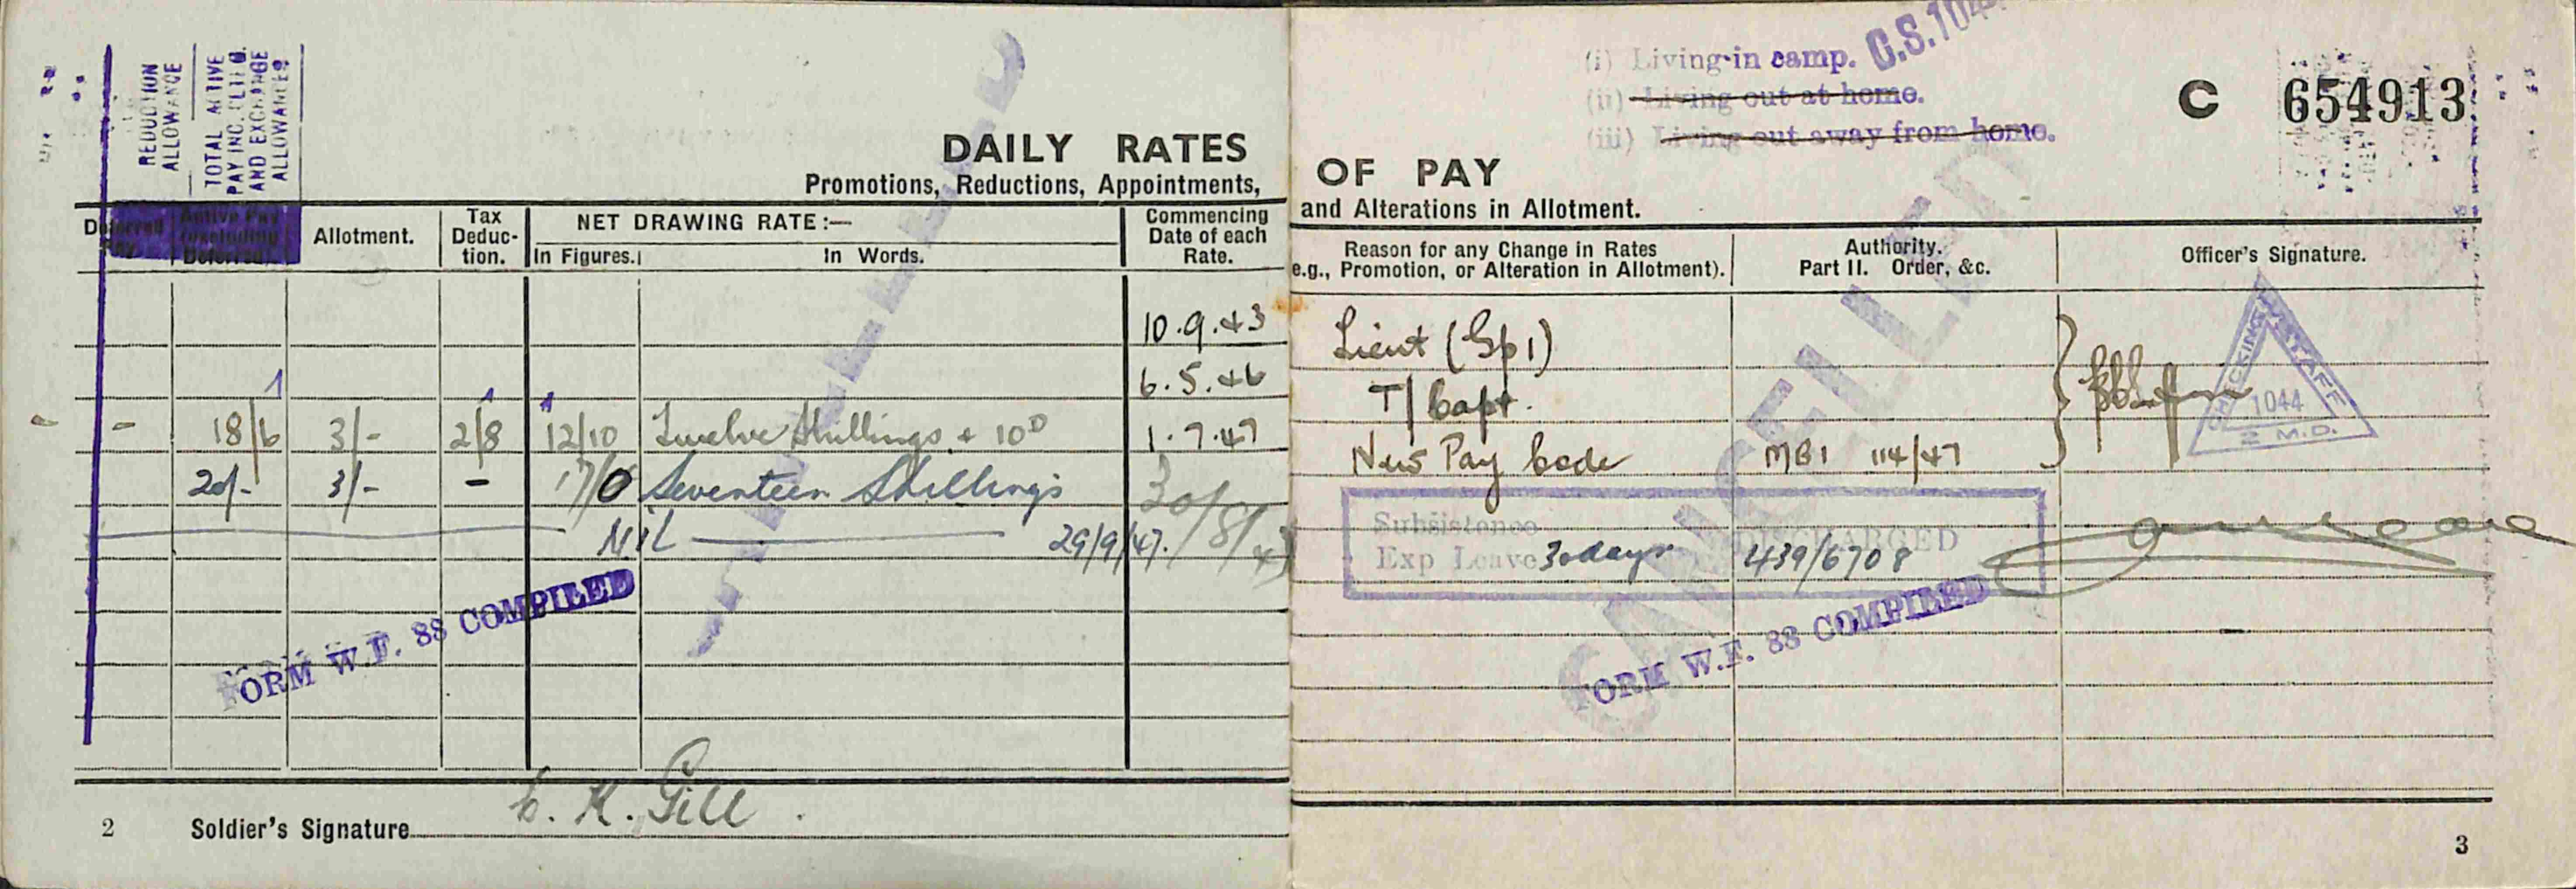 REDUCTION ALLOWANCE
TOTAL ACTIVE PAY INC. AND EXCHANGE ALLOWANCES
DAILY RATES
Promotions, Reductions, Appointments,
Deferred Pay
Active Pay (excluding Deferred).
Allotment.
Tax Deduc- tion.
NET DRAWING RATE:—
In Figures.
In Words.
Commencing Date of each Rate.
10.9.43
6.5.46
- 18/6 3/- 2/8 12/10 Twelve Shillings + 10D 1.7.47
20/- 3/- - 17/0 Seventeen Shillings 30/8/47
Nil 29/9/47.
FORM W.F. 88 COMPILED
C. K. Gill.
2 Soldier's Signature
(i) Living in camp. C.S.104
(ii) Living out at home.
(iii) Living out away from home.
C 654913
OF PAY
and Alterations in Allotment.
Reason for any Change in Rates
e.g., Promotion, or Alteration in Allotment).
Authority.
Part II. Order, &c.
Officer's Signature.
Lieut (Gp 1)
T/Capt.
New Pay Code MB1 114/47
CHECKING STAFF
1044
2 M.D.
Subsistence
Exp Leave 30 days DISCHARGED 439/6708
CANCELLED
FORM W.F. 88 COMPILED
3